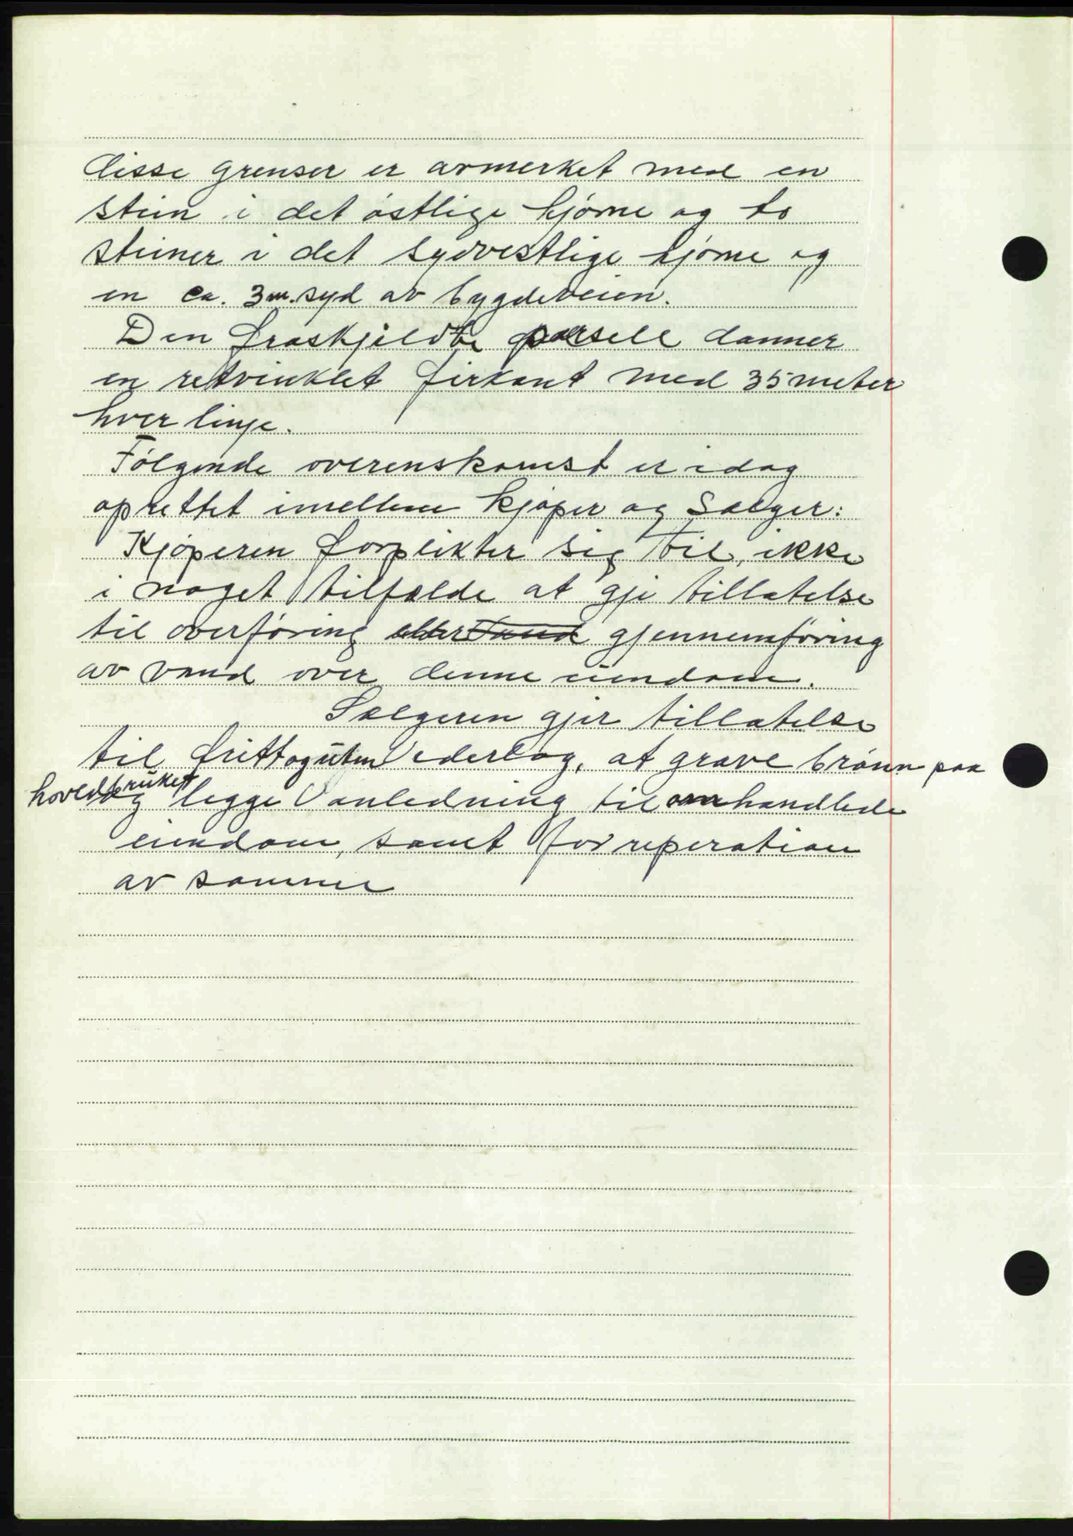 disse grenser er avmerket med en
stein i det östlige hjörne og to
steiner i det sydvestlige hjörne og
en ca. 3 m. syd av bygdeveien.
Den fraskjeldte parsell danner
en retvinklet firkant med 35 meter
hver linje.
Fölgende overenskomst er idag
oprettet imellem kjöper og Sælger:
Kjöperen forplikter sig til, ikke
i noget tilfælde at gje tillatelse
til overföring eller gjennemföring
av vand over denne eiendom.
Sælgeren gjer tillatelse
til fritt og uten Vederlag, at grave brönn paa
hovedbruket
og legge Vanledning til omhandlede
eiendom, samt for reperation
av samme